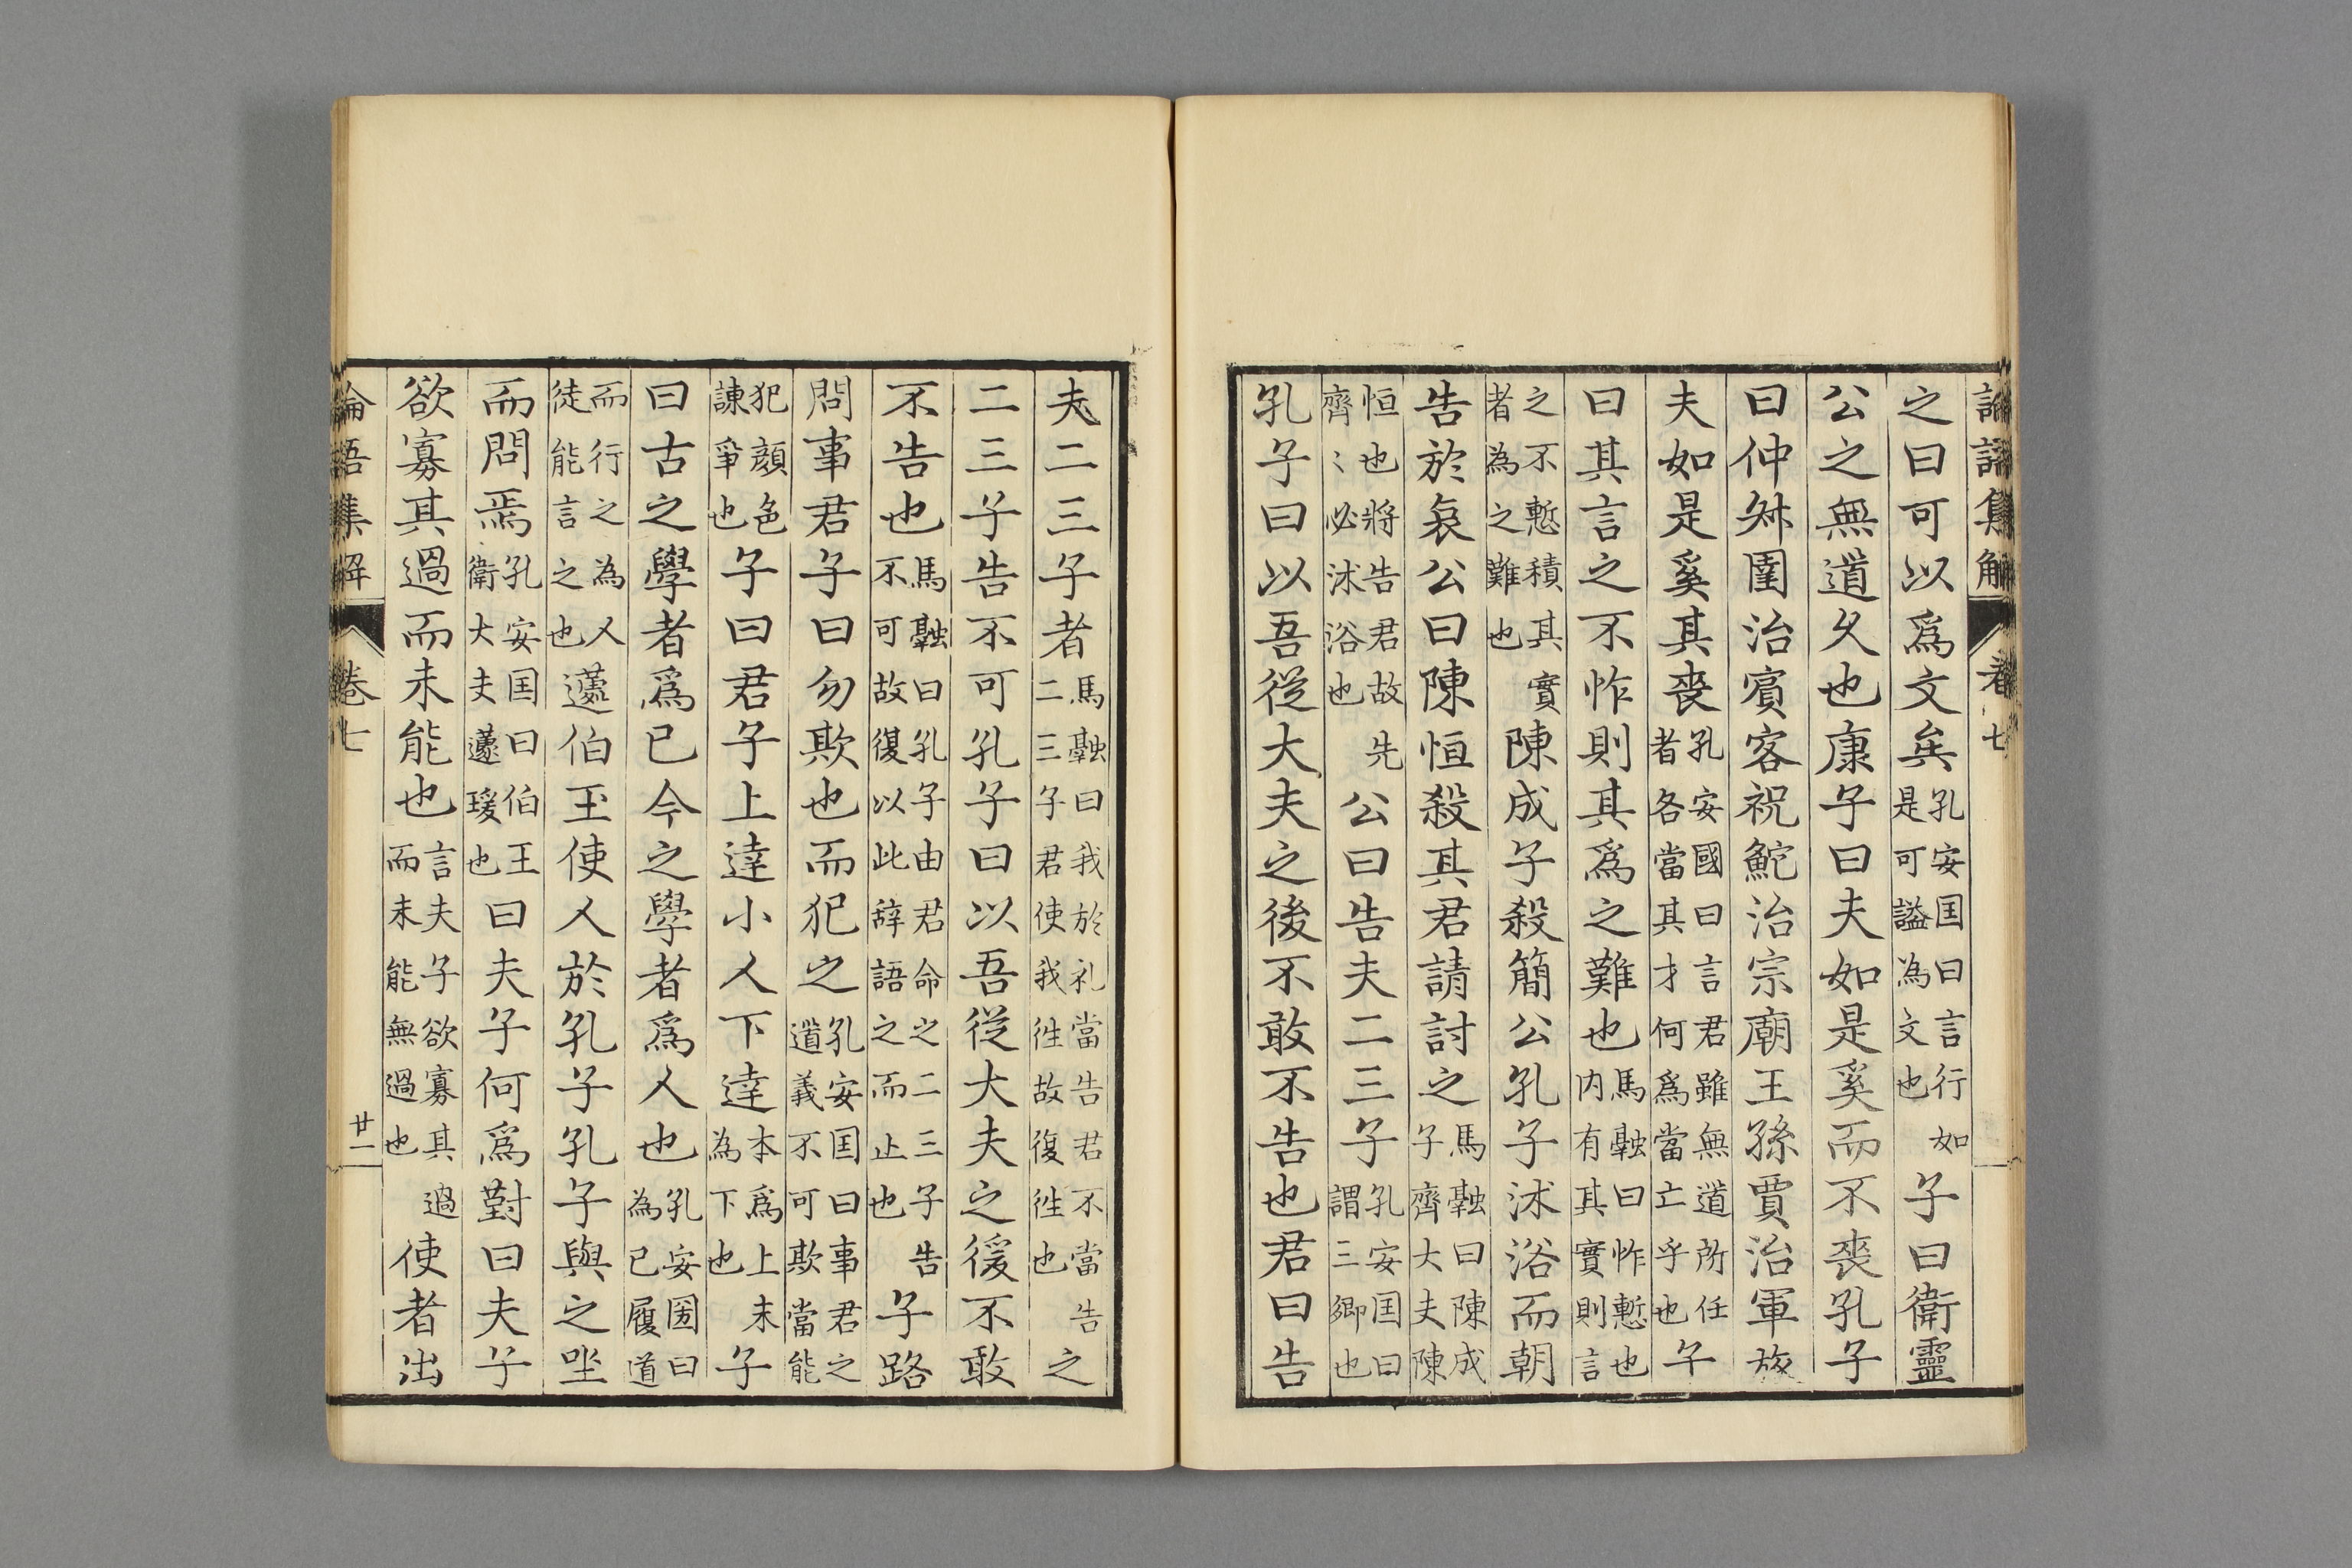 論語集解 卷七
之曰可以爲文矣孔安囯曰言行如是可謚為文也子曰衛靈
公之無道久也康子曰夫如是奚而不喪孔子
曰仲叔圉治賔客祝鮀治宗廟王孫賈治軍旅
夫如是奚其喪孔安國曰言君雖無道所任者各當其才何爲當亡乎也子
曰其言之不怍則其爲之難也馬融曰怍慙也内有其實則言
之不慙積其實者為之難也陳成子殺簡公孔子沐浴而朝
告於哀公曰陳恒殺其君請討之馬融曰陳成子齊大夫陳
恒也將告君故先齊〻必沐浴也公曰告夫二三子孔安囯曰謂三卿也
孔子曰以吾從大夫之後不敢不告也君曰告
夫二三子者馬融曰我於礼當告君不當告二三子君使我徃故復徃也之
二三子告不可孔子曰以吾從大夫之後不敢
不告也馬融曰孔子由君命之二三子告不可故復以此辞語之而止也子路
問事君子曰勿欺也而犯之孔安囯曰事君之道義不可欺當能
犯顔色諌爭也子曰君子上達小人下達本爲上末為下也子
曰古之學者爲己今之學者爲人也孔安囯曰為己履道
而行之為人徒能言之也蘧伯玉使人於孔子孔子與之坐
而問焉孔安囯曰伯王衛大夫蘧瑗也曰夫子何爲對曰夫子
欲寡其過而未能也言夫子欲寡其過而未能無過也使者出
論語集解 卷七 廿一